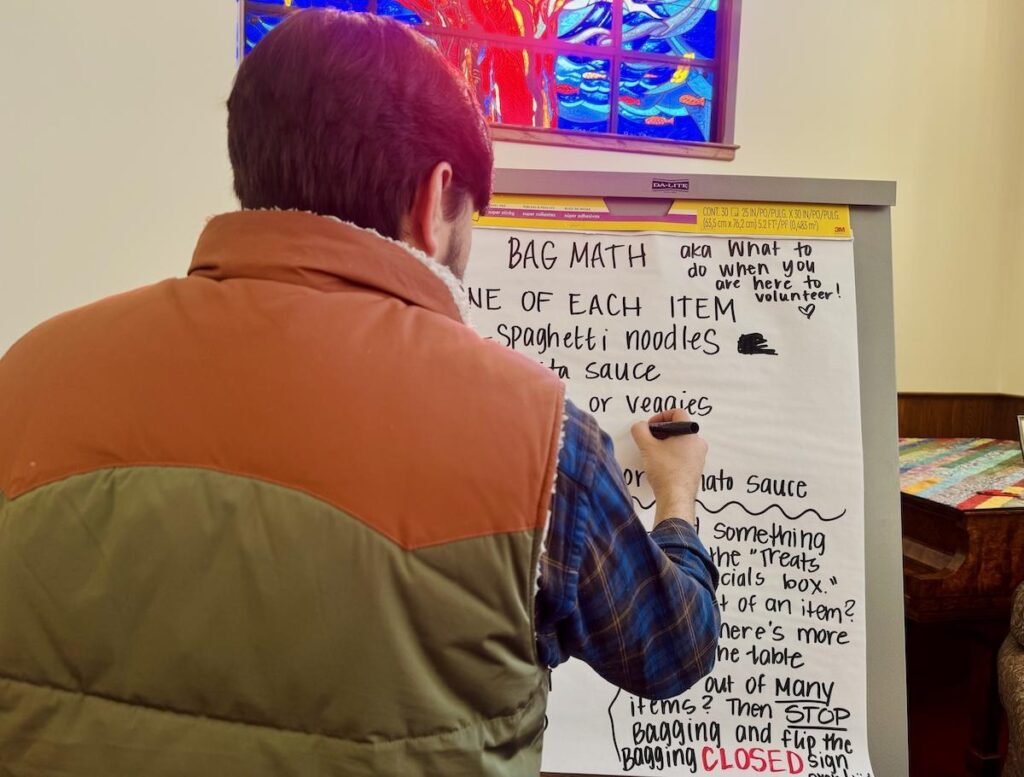 DA-LITE
super sticky super adhesivas súper adhesivo
CONT. 30 25 IN/PO/PULG. X 30 IN/PO/PULG.
(63,5 cm x 76,2 cm) 5.2 FT²/PP (0,483 m²)
3M
BAG MATH aka What to
do when you
are here to
volunteer!
NE OF EACH ITEM
-Spaghetti noodles
ta sauce
or veggies
or mato sauce
something
the "Treats
cials box."
t of an item?
here's more
he table
out of MANY
items? Then STOP
Bagging and flip the
Bagging CLOSED sign